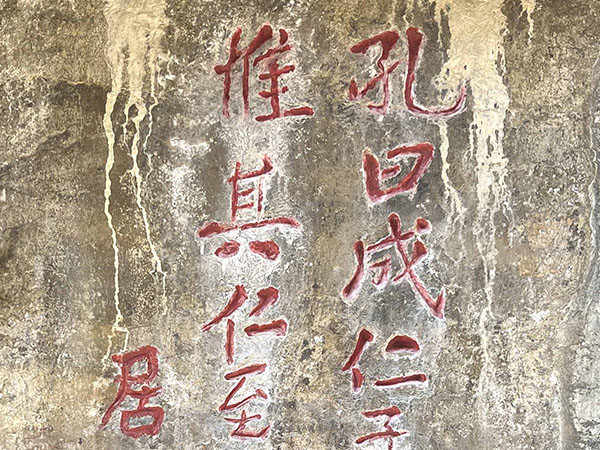 孔曰成仁子
惟其仁至
居